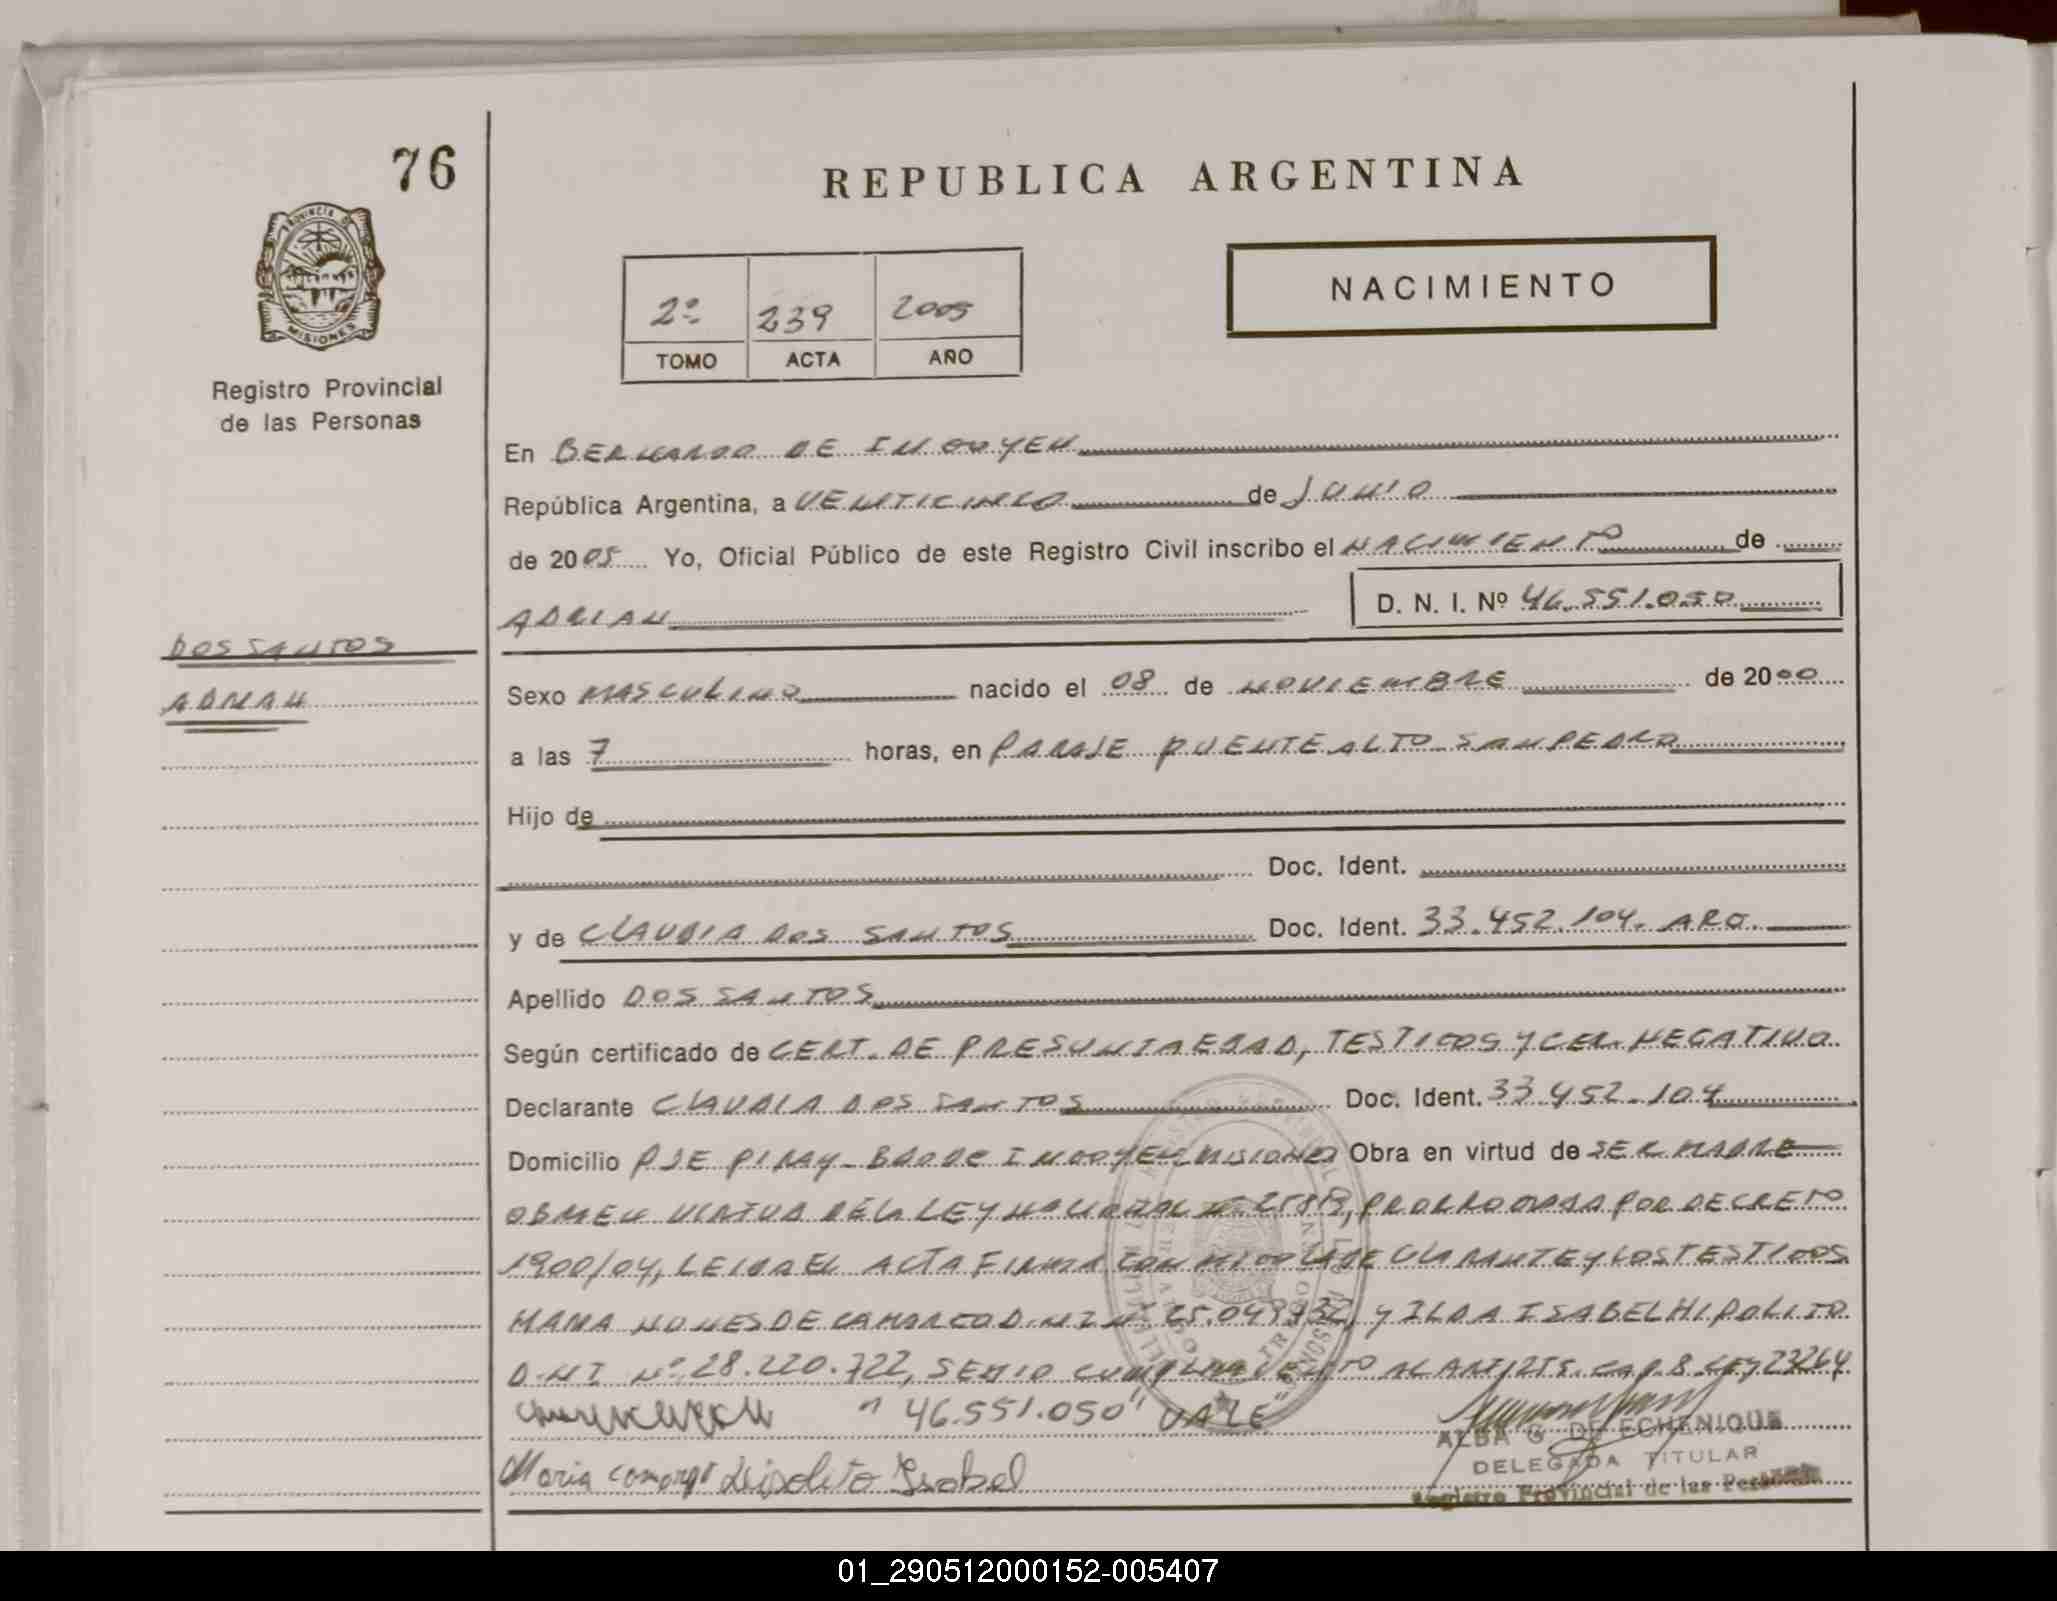 76
REPUBLICA ARGENTINA
PROVINCIA DE
MISIONES
Registro Provincial
de las Personas
2º 239 2005
TOMO ACTA AÑO
NACIMIENTO
En BERNARDO DE IRIGOYEN
República Argentina, a VEINTICINCO de JUNIO
de 2005 Yo, Oficial Público de este Registro Civil inscribo el NACIMIENTO de
ADRIAN D. N. I. Nº 46.551.050
DOS SANTOS
ADRIAN
Sexo MASCULINO nacido el 08 de NOVIEMBRE de 2000
a las 7 horas, en PARAJE PUENTE ALTO SAN PEDRO
Hijo de
Doc. Ident.
y de CLAUDIA DOS SANTOS Doc. Ident. 33.452.104. ARG.
Apellido DOS SANTOS
Según certificado de CERT. DE PRESUNTA EDAD, TESTIGOS Y CER. NEGATIVO
Declarante CLAUDIA DOS SANTOS Doc. Ident. 33.452.104
Domicilio PJE PIRAY - BDO DE IRIGOYEN MISIONES Obra en virtud de SER MADRE
OBRA EN VIRTUD DE LA LEY NACIONAL Nº 25819, PRORROGADA POR DECRETO
1900/04, LEIDA EL ACTA FIRMA CONMIGO LA DECLARANTE Y LOS TESTIGOS
MARIA NUNES DE CAMARGO D.N.I Nº 25.049.   Y ILDA ISABEL HIPOLITO
D.N.I Nº 28.220.722, SE DIO CUMPLIMIENTO AL ART. CAP. 8. LEY 23264
"46.551.050" VALE
Maria camargo Hipolito Isabel
ALBA G DE ECHENIQUE
DELEGADA TITULAR
Registro Provincial de las Personas
01_290512000152-005407